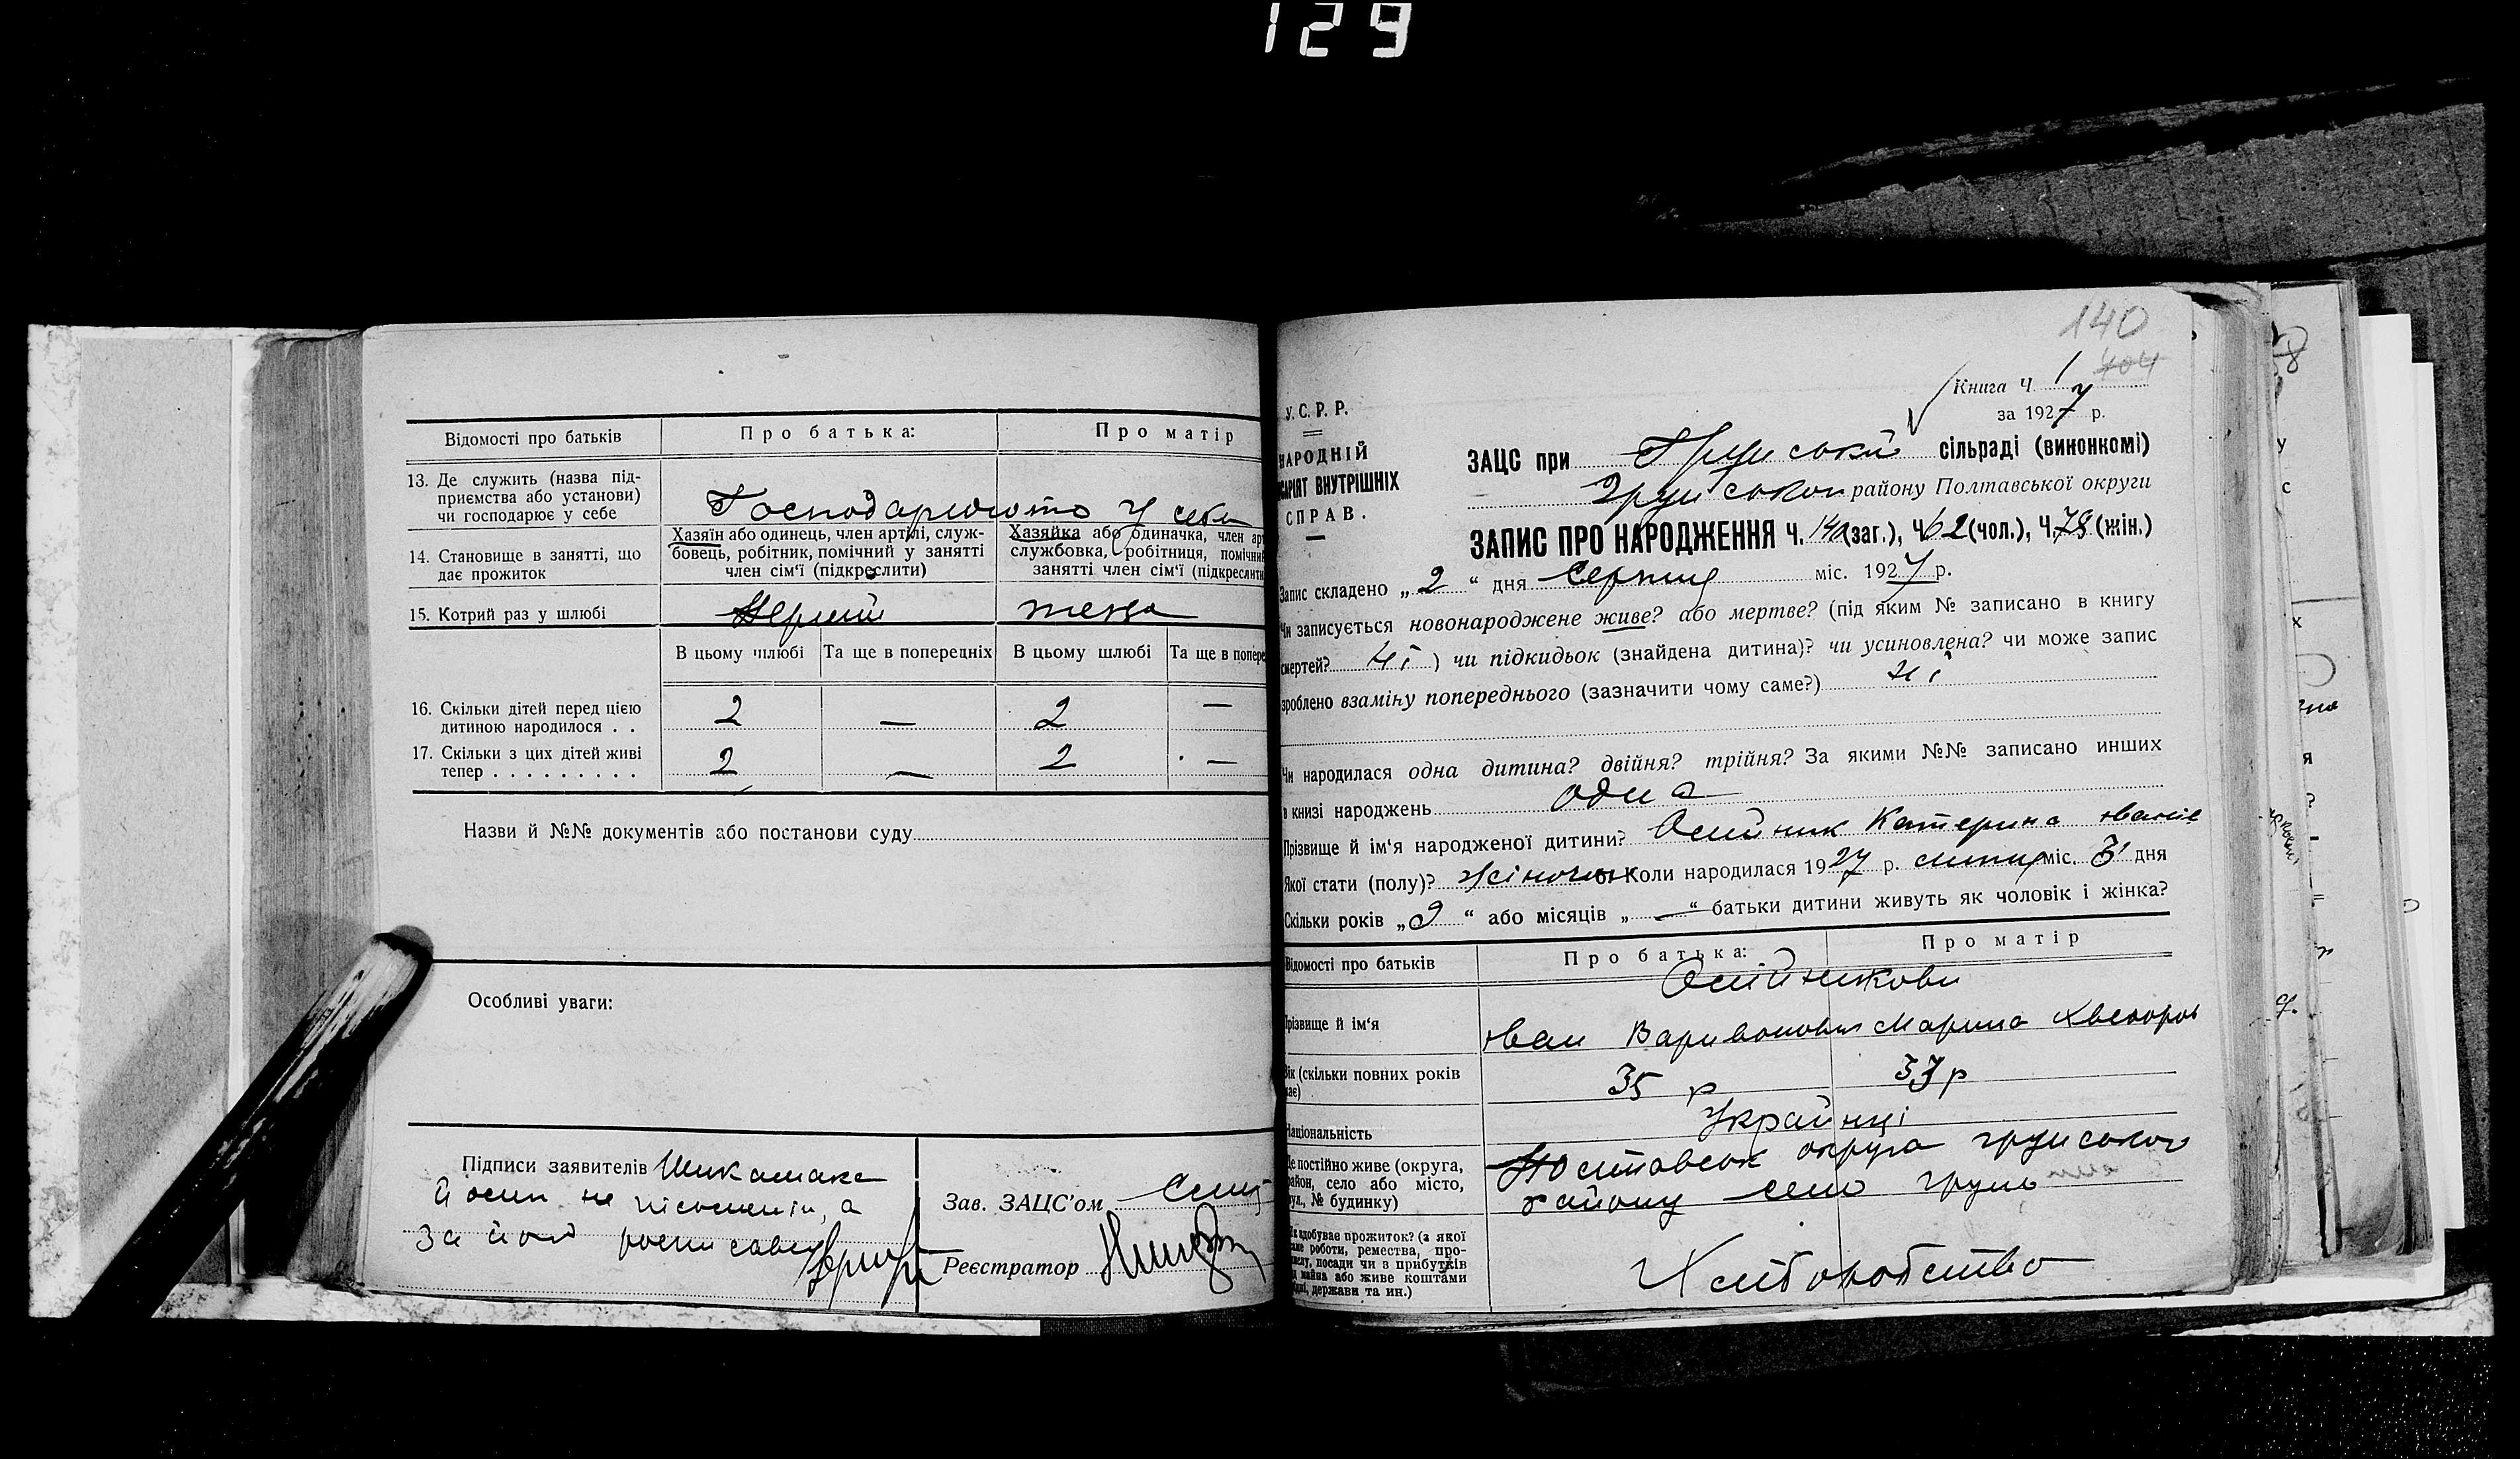 129
Відомості про батьків
Про батька:
Про матір
13. Де служить (назва під-
приємства або установи)
чи господарює у себе
Господарюють у себе
14. Становище в занятті, що
дає прожиток
Хазяїн або одинець, член артілі, служ-
бовець, робітник, помічний у занятті
член сім‘ї (підкреслити)
Хазяйка або одиначка, член ар
службовка, робітниця, помічни
занятті член сім‘ї (підкреслити
15. Котрий раз у шлюбі
Перший
теж
В цьому шлюбі
Та ще в попередніх
В цьому шлюбі
Та ще в попере
16. Скільки дітей перед цією
дитиною народилося . .
2 — 2 —
17. Скільки з цих дітей живі
тепер . . . . . . . . .
2 — 2 —
Назви й №№ документів або постанови суду
Особливі уваги:
Підписи заявителів
не
а
за його
Зав. ЗАЦС’ом
Реєстратор
140
404
Книга Ч. 1
за 1927 р.
У. С. Р. Р.
НАРОДНІЙ
САРІЯТ ВНУТРІШНІХ
СПРАВ.
ЗАЦС при Груйській сільраді (виконкомі)
Груйського району Полтавської округи
ЗАПИС ПРО НАРОДЖЕННЯ Ч. 140 (заг.), Ч. 62 (чол.), Ч. 78 (жін.)
Запис складено „2“ дня Серпня міс. 1927 р.
Чи записується новонароджене живе? або мертве? (під яким № записано в книгу
смертей? Ні ) чи підкидьок (знайдена дитина)? чи усиновлена? чи може запис
зроблено взаміну попереднього (зазначити чому саме?) Ні
Чи народилася одна дитина? двійня? трійня? За якими №№ записано инших
в книзі народжень одна
Прізвище й ім‘я народженої дитини? Олійник Катерина Іванів
Якої стати (полу)? Жіночої Коли народилася 1927 р. липня міс. 3 дня
Скільки років „9“ або місяців „—“ батьки дитини живуть як чоловік і жінка?
Відомості про батьків
Про батька:
Про матір
Олійникови
Прізвище й ім‘я
ІванВаривонович
Марина Хведоров
Вік (скільки повних років
має)
35 р
33 р
Національність
Українці
Де постійно живе (округа,
район, село або місто,
вул., № будинку)
Полтавськ округа груйського
району село груйь
Як здобуває прожиток? (з якої
саме роботи, ремества, про-
мислу, посади чи з прибутків
від майна або живе коштами
рідні, держави та ин.)
Хліборобство